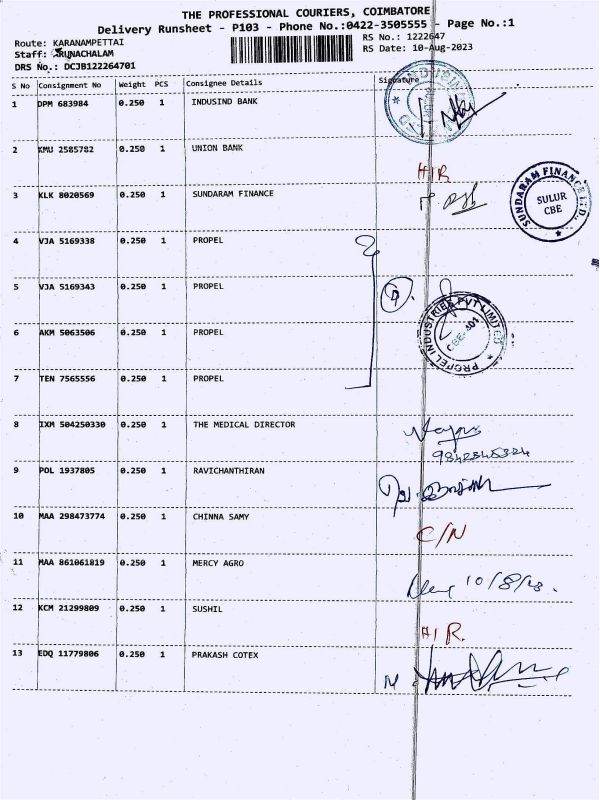 THE PROFESSIONAL COURIERS, COIMBATORE
Delivery Runsheet - P103 - Phone No.:0422-3505555 - Page No.:1
Route: KARANAMPETTAI RS No.: 1222647
Staff: ARUNACHALAM RS Date: 10-Aug-2023
DRS No.: DCJB122264701
S No Consignment No Weight PCS Consignee Details Signature
1 DPM 683984 0.250 1 INDUSIND BANK
2 KMU 2585782 0.250 1 UNION BANK H/R
3 KLK 8020569 0.250 1 SUNDARAM FINANCE
SUNDARAM FINANCE LTD.
SULUR
CBE
4 VJA 5169338 0.250 1 PROPEL
5 VJA 5169343 0.250 1 PROPEL
PROPEL INDUSTRIES PVT LIMITED
CBE-402
6 AKM 5063506 0.250 1 PROPEL
7 TEN 7565556 0.250 1 PROPEL
8 IXM 504250330 0.250 1 THE MEDICAL DIRECTOR
9 POL 1937805 0.250 1 RAVICHANTHIRAN
10 MAA 298473774 0.250 1 CHINNA SAMY C/N
11 MAA 861061819 0.250 1 MERCY AGRO 10/8/23.
12 KCM 21299809 0.250 1 SUSHIL H/R.
13 EDQ 11779806 0.250 1 PRAKASH COTEX